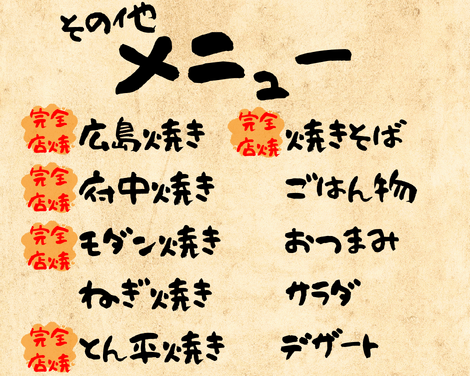 その他
メニュー
完全
店焼
広島焼き
完全
店焼
府中焼き
完全
店焼
モダン焼き
ねぎ焼き
完全
店焼
とん平焼き
完全
店焼
焼きそば
ごはん物
おつまみ
サラダ
デザート